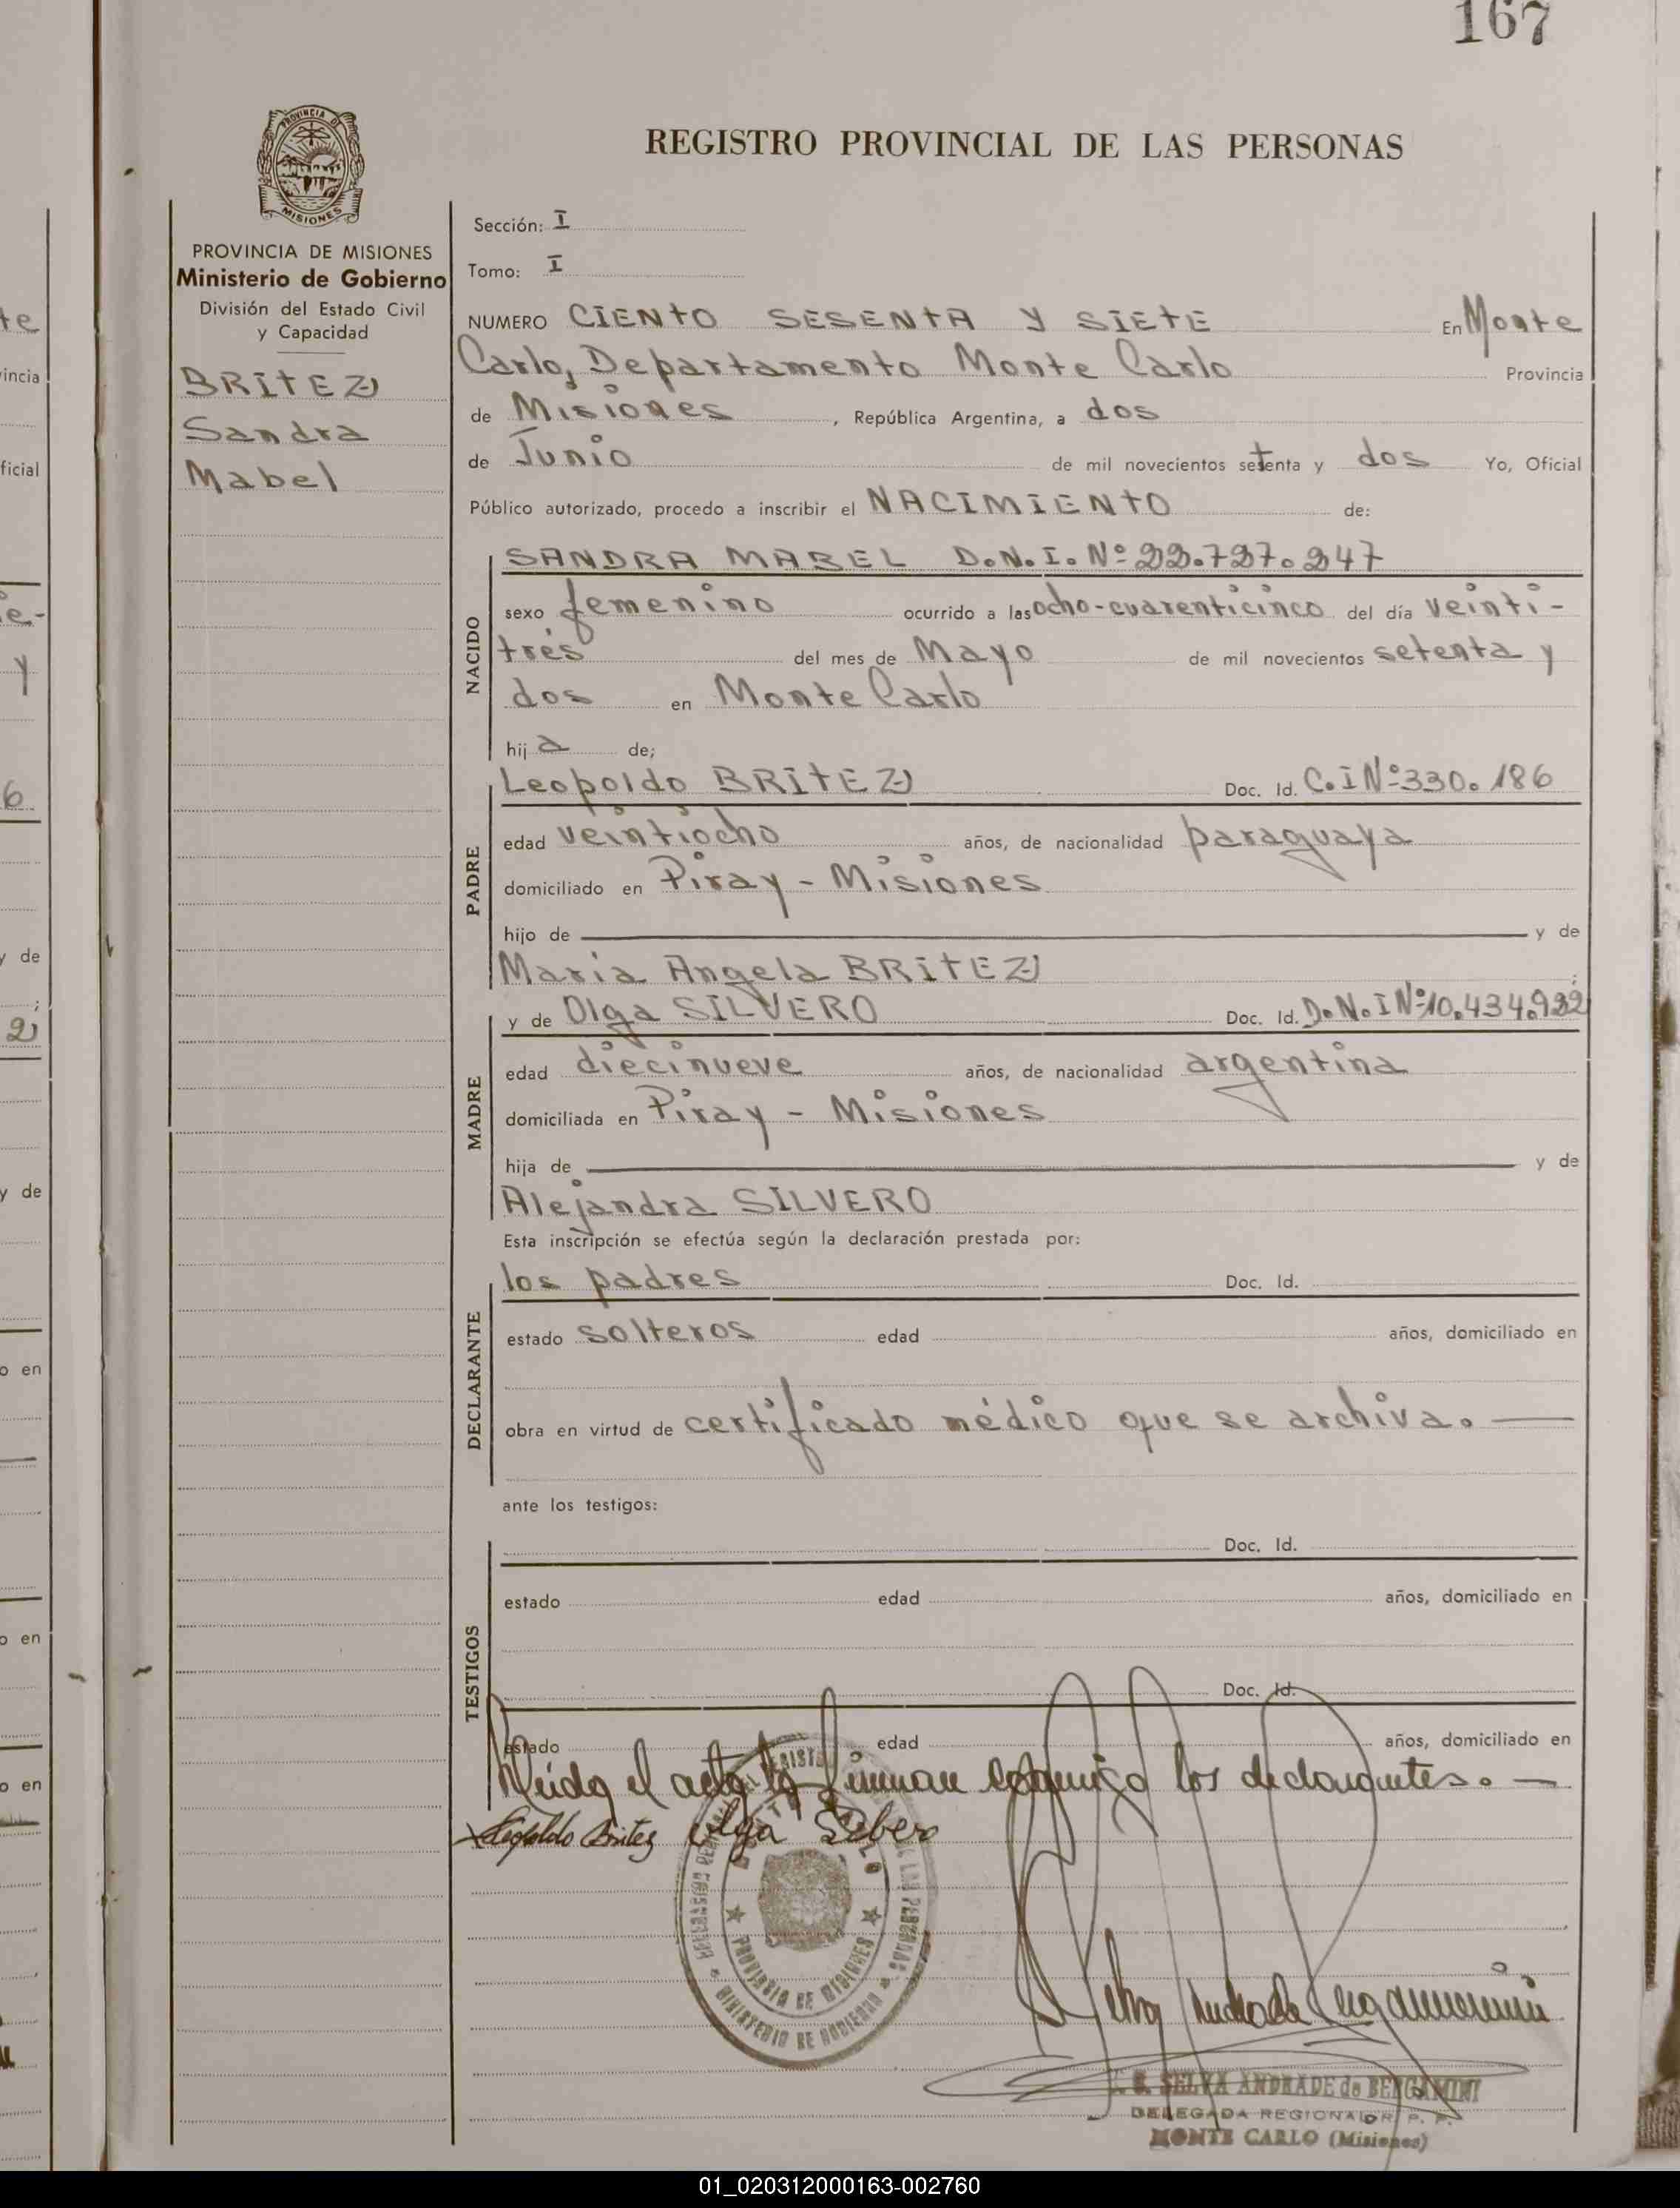 167
PROVINCIA DE
MISIONES
REGISTRO PROVINCIAL DE LAS PERSONAS
PROVINCIA DE MISIONES
Ministerio de Gobierno
División del Estado Civil
y Capacidad
BRITEZ
Sandra
Mabel
Sección: I
Tomo: I
NUMERO CIENTO SESENTA Y SIETE En Monte
Carlo, Departamento Monte Carlo Provincia
de Misiones, República Argentina, a dos
de Junio de mil novecientos setenta y dos Yo, Oficial
Público autorizado, procedo a inscribir el NACIMIENTO de:
NACIDO
SANDRA MABEL D.N.I. Nº 22.727.247
sexo femenino ocurrido a las ocho-cuarenticinco del día veinti-
trés del mes de Mayo de mil novecientos setenta y
dos en Monte Carlo
hija de;
PADRE
Leopoldo BRITEZ Doc. Id. C.I Nº 330.186
edad veintiocho años, de nacionalidad paraguaya
domiciliado en Piray - Misiones
hijo de y de
María Angela BRITEZ
MADRE
y de Olga SILVERO Doc. Id. D.N.I Nº 10.434.932
edad diecinueve años, de nacionalidad argentina
domiciliada en Piray - Misiones
hija de y de
Alejandra SILVERO
Esta inscripción se efectúa según la declaración prestada por:
DECLARANTE
los padres Doc. Id.
estado solteros edad años, domiciliado en
obra en virtud de certificado médico que se archiva. —
ante los testigos:
TESTIGOS
Doc. Id.
estado edad años, domiciliado en
Doc. Id.
estado edad años, domiciliado en
leída el acta la firman conmigo los declarantes. —
Leopoldo Britez Olga Silbero
PROVINCIA DE MISIONES
MINISTERIO DE GOBIERNO
Selva Andrade Bergamini
SELVA ANDRADE de BERGAMINI
DELEGADA REGIONAL R. P. P.
MONTE CARLO (Misiones)
01_020312000163-002760